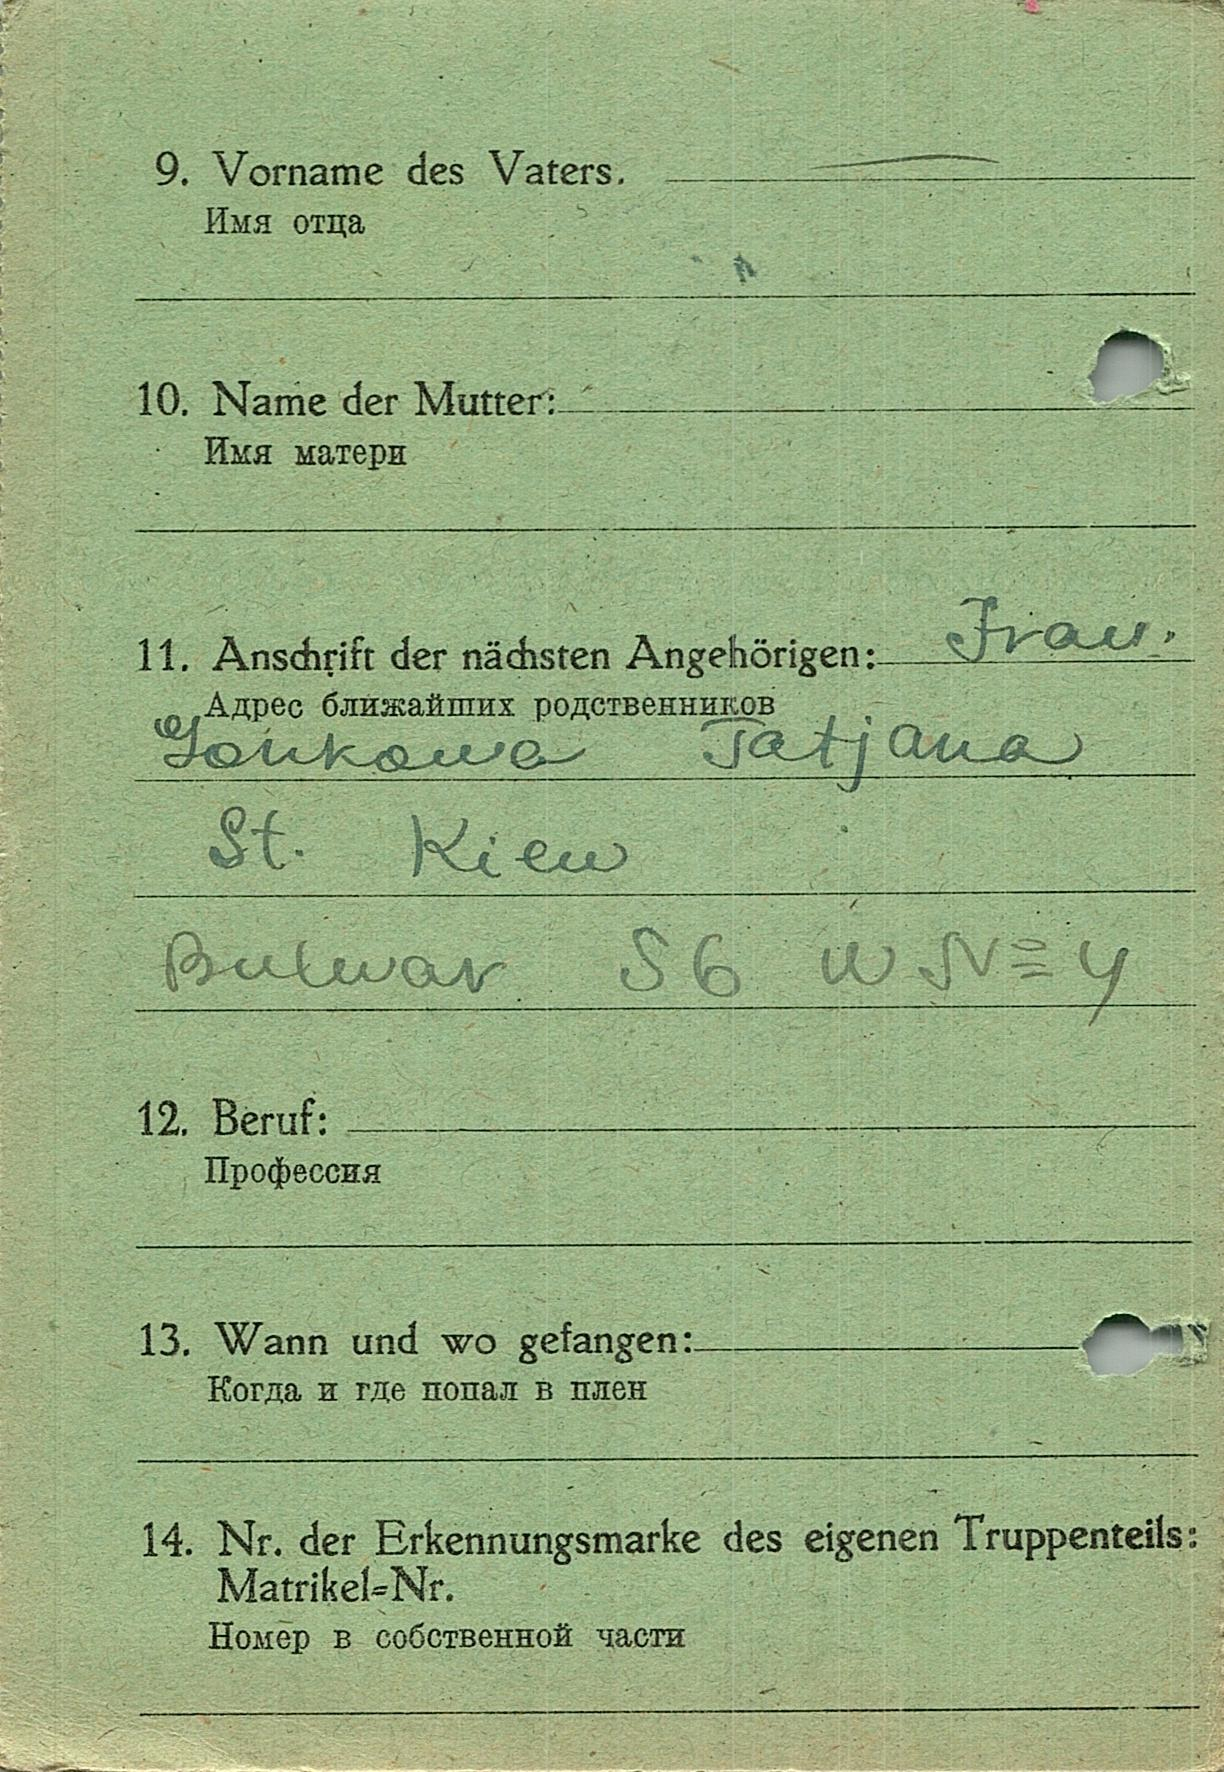 9. Vorname des Vaters.
Имя отца
10. Name der Mutter:
Имя матери
11. Anschrift der nächsten Angehörigen: Frau.
Адрес ближайших родственников
Tatjana
St. Kiew
Bulwar 56 W N= 4
12. Beruf:
Профессия
13. Wann und wo gefangen:
Когда и где попал в плен
14. Nr. der Erkennungsmarke des eigenen Truppenteils:
Matrikel=Nr.
Номер в собственной части